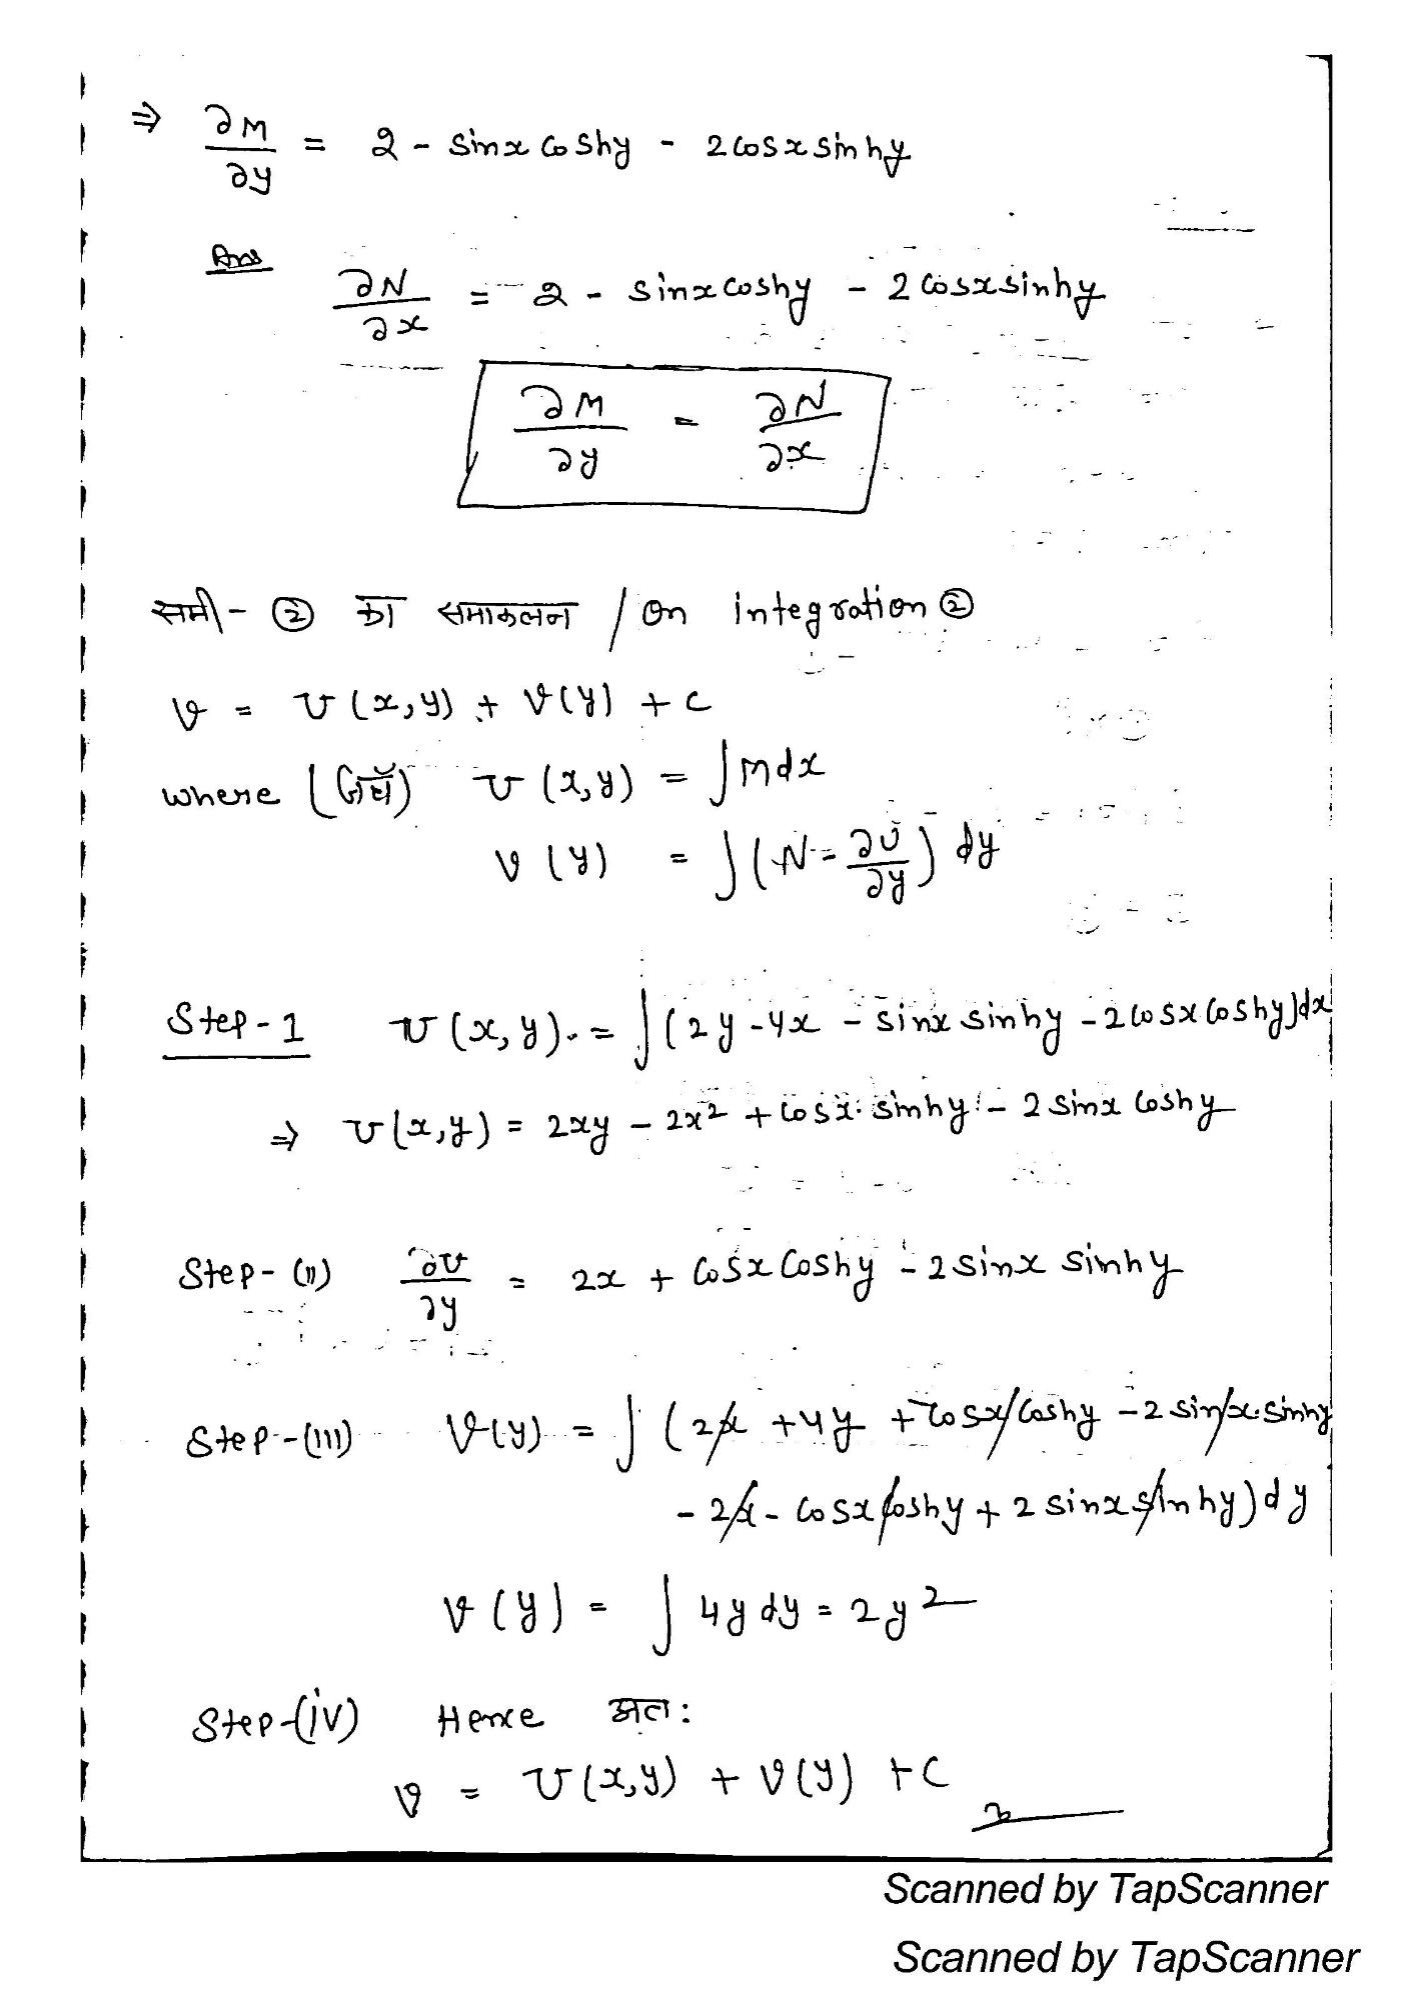 ⇒ ∂M/∂y = 2 - sinx coshy - 2cosx sinhy
Ans ∂N/∂x = 2 - sinx coshy - 2cosxsinhy
∂M/∂y = ∂N/∂x
समी- ② का समाकलन / on integration ②
v = U(x,y) + V(y) + c
where (जहाँ) U(x,y) = ∫Mdx
V(y) = ∫(N - ∂U/∂y) dy
Step-1 U(x,y) = ∫(2y-4x - sinx sinhy - 2cosx coshy)dx
⇒ U(x,y) = 2xy - 2x² + cosx. sinhy - 2sinx coshy
Step-(ii) ∂U/∂y = 2x + cosx coshy - 2sinx sinhy
Step-(iii) V(y) = ∫(2x + 4y + cosx coshy - 2sinx.sinhy
- 2x - cosx coshy + 2sinx sinhy)dy
V(y) = ∫ 4y dy = 2y²
Step-(iv) Hence अतः
v = U(x,y) + V(y) + C
Scanned by TapScanner
Scanned by TapScanner